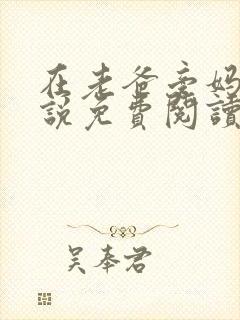 在老爸旁妈
説免費閱讀
吴奉君